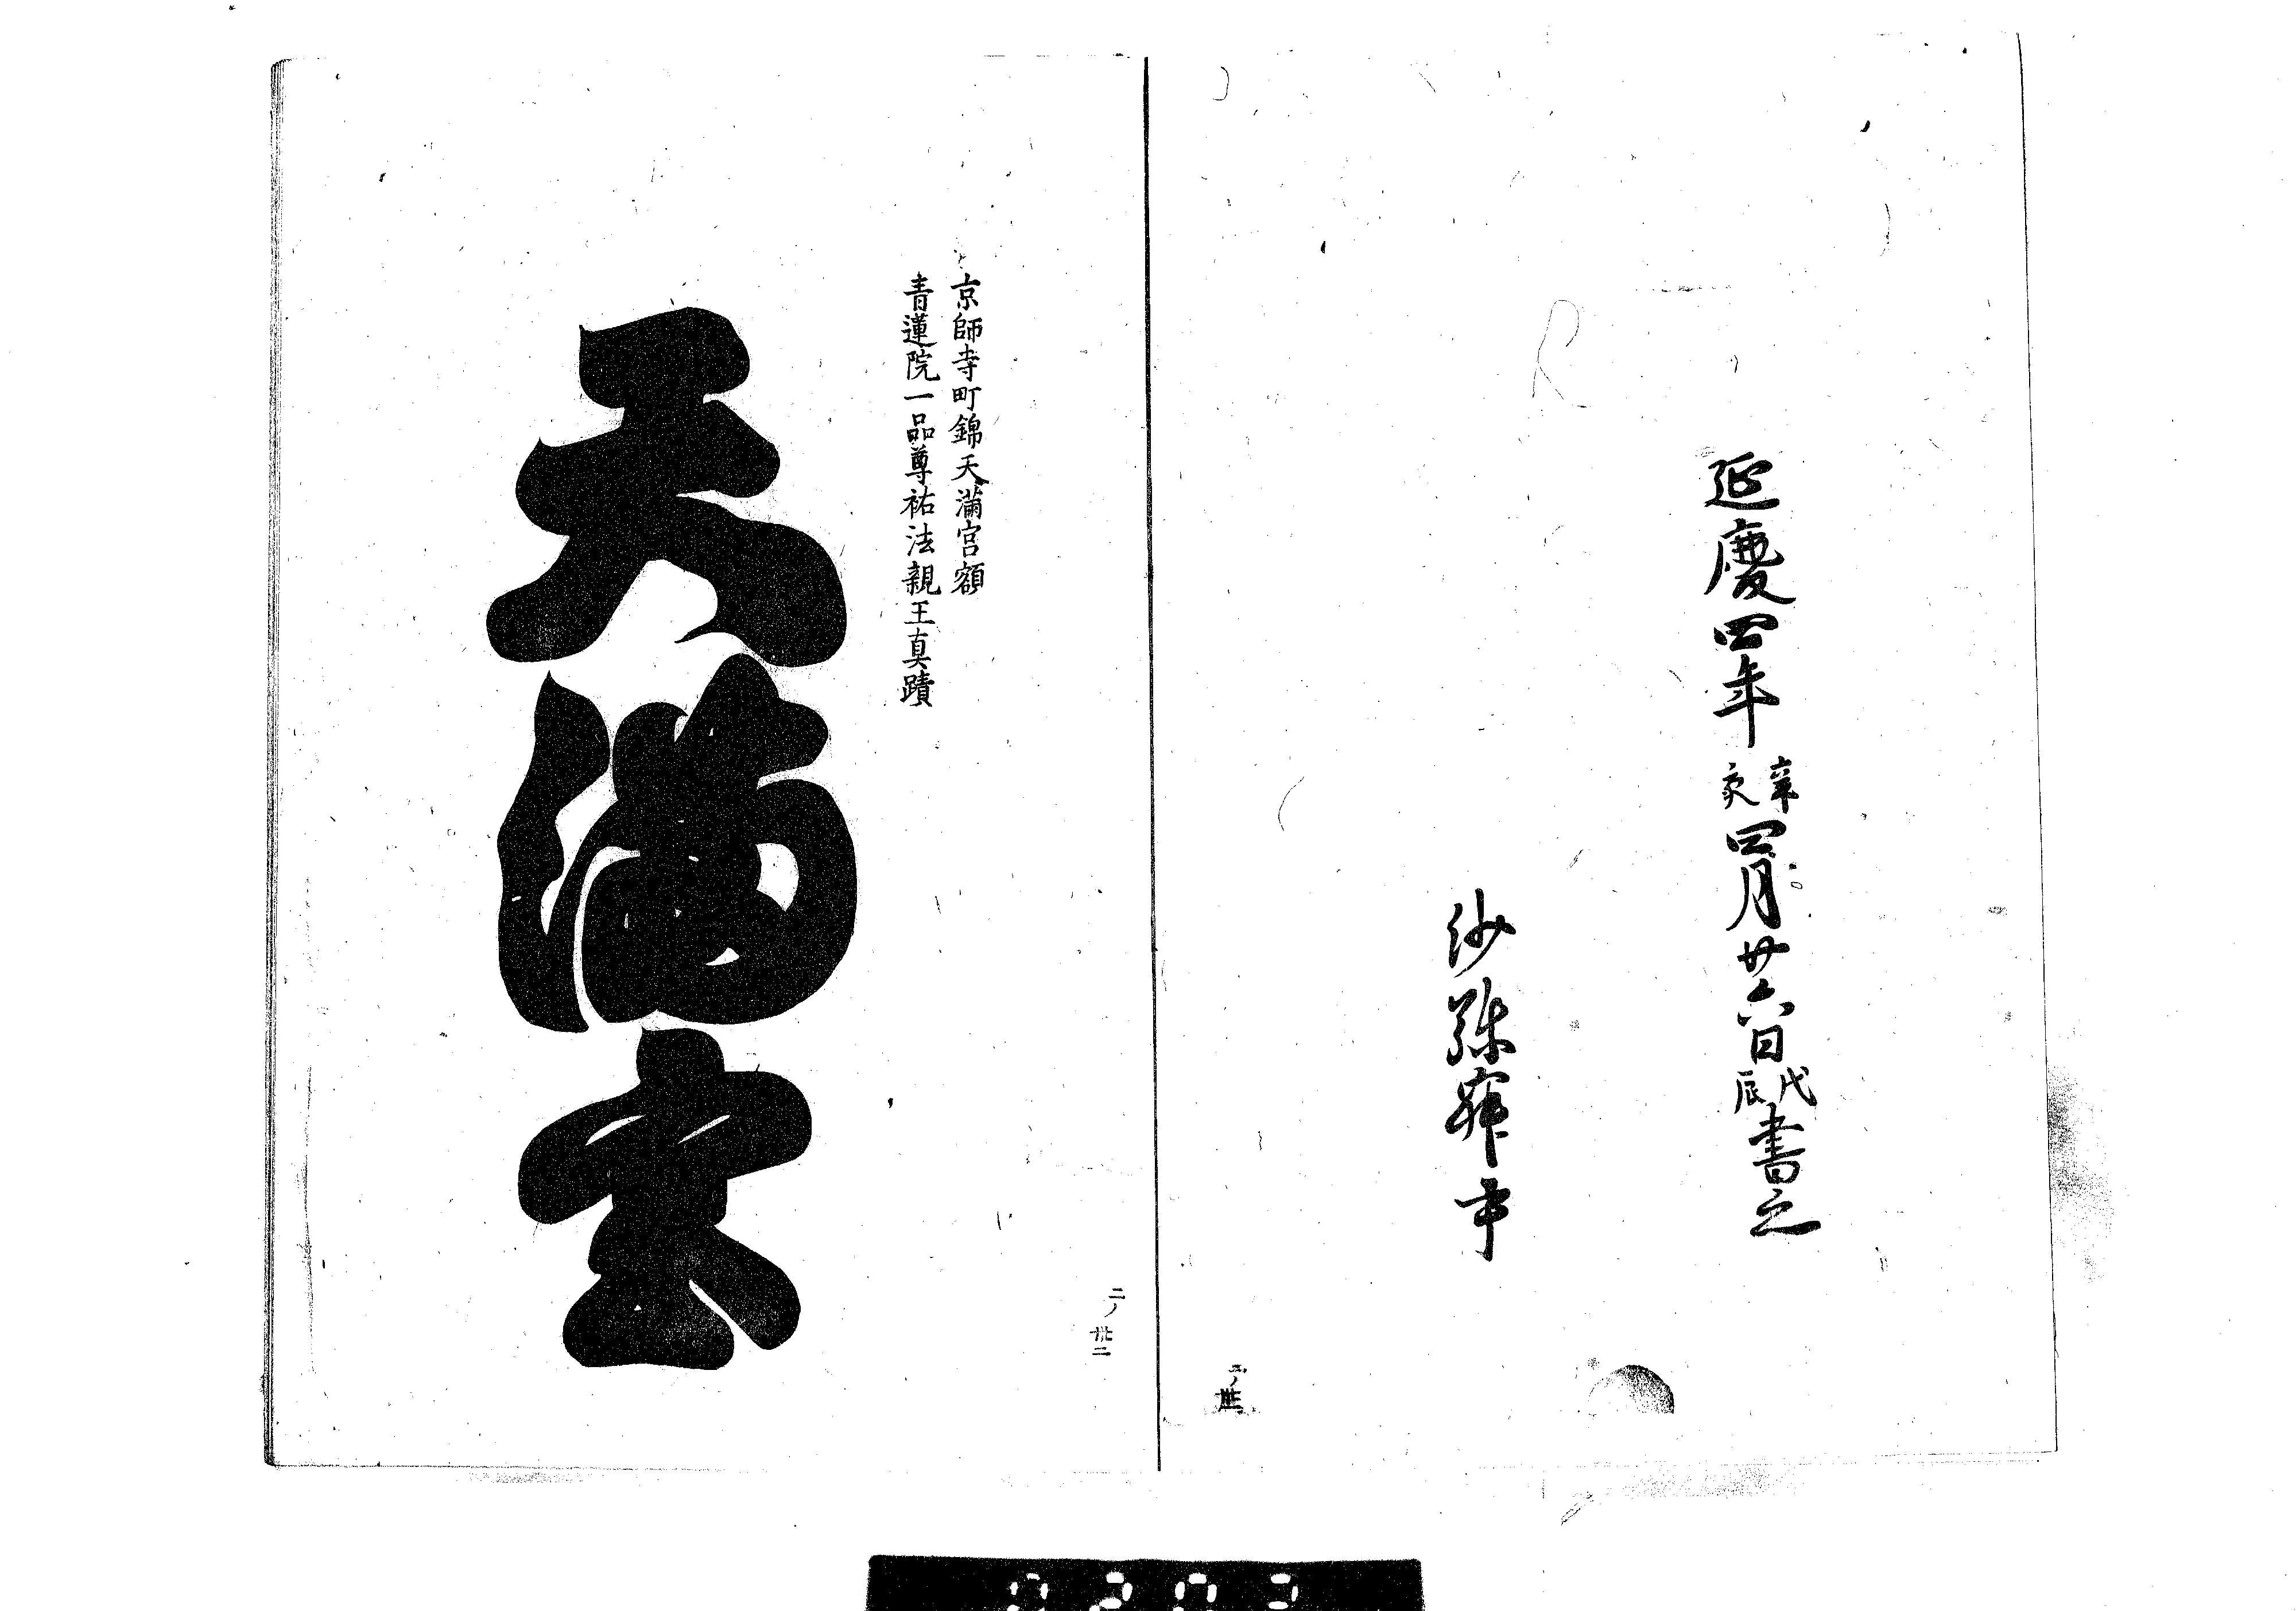 延慶四年辛亥四月廿六日戊辰書之
沙弥寂尹
京師寺町錦天滿宮額
青蓮院一品尊祐法親王真蹟
天満宮
二ノ丗二